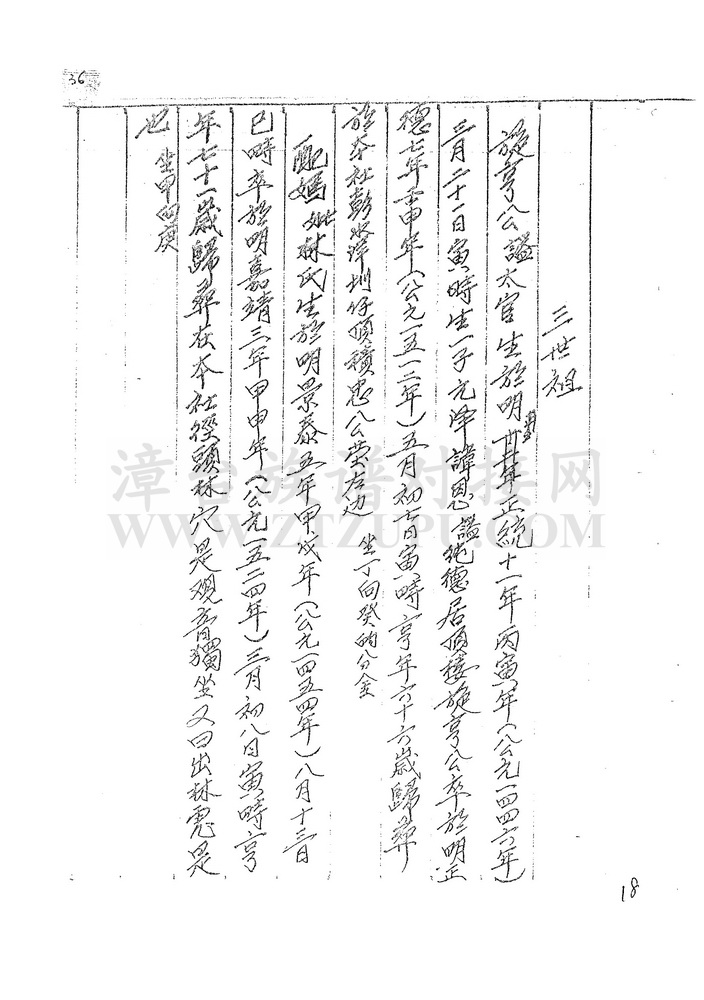 36
三世祖
旋亨公謚太官生於明英宗年正統十一年丙寅年(公元一四四六年)
三月二十一日寅時生一子元澤諱恩謚純德居頂樓旋亨公卒於明正
德七年壬申年(公元一五一二年)五月初七日寅時亨年六十六歲歸葬
於本社彭水洋圳仔頂積忠公茔左边 坐丁向癸的八分金
配媽妣林氏生於明景泰五年甲戌年(公元一四五四年)八月十三日
巳時卒於明嘉靖三年甲申年(公元一五二四年)三月初八日寅時亨
年七十一歲歸葬在本社徑頭林穴是观音獨坐又曰出林虎是
也 坐甲向庚
18
漳台族谱对接网
WWW.ZTZUPU.COM